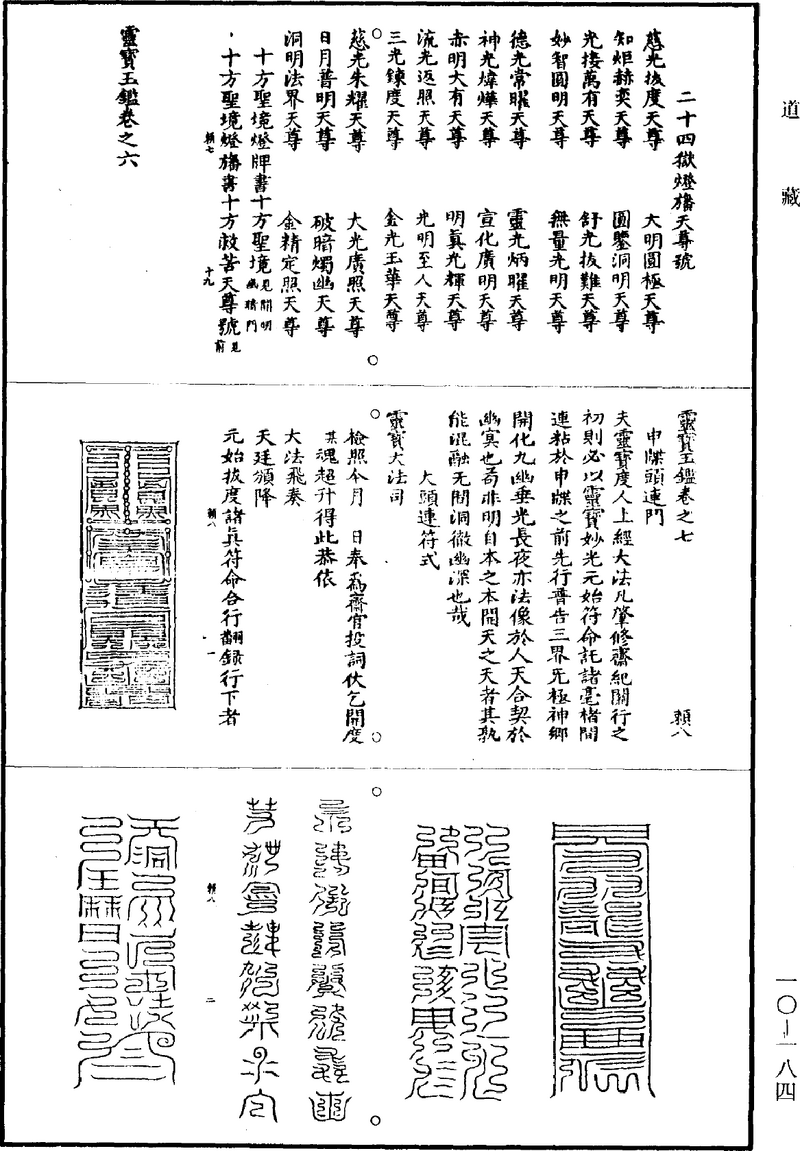 道藏
二十四獄燈旛天尊號
慈光拔度天尊　大明圓極天尊
知炬赫奕天尊　圓鑒洞明天尊
光接萬有天尊　舒光拔難天尊
妙智圓明天尊　無量光明天尊
德光常曜天尊　靈光炳曜天尊
神光煒燁天尊　宣化廣明天尊
赤明大有天尊　明真光輝天尊
流光返照天尊　光明至人天尊
三光鍊度天尊　金光玉華天尊
慈光朱耀天尊　大光廣照天尊
日月普明天尊　破暗燭幽天尊
洞明法界天尊　金精定照天尊
十方聖境燈牌書十方聖境見開明幽暗門
十方聖境燈旛書十方救苦天尊號見前
頼七　十九
靈寶玉鑑卷之六
靈寶玉鑑卷之七　頼八
申牒頭連門
夫靈寶度人上經大法凡肇修齋紀關行之
初則必以靈寶妙光元始符命託諸毫楮間
連粘於申牒之前先行普告三界无極神鄉
開化九幽垂光長夜亦法像於人天合契於
幽冥也苟非明自本之本開天之天者其孰
能混融无間洞徹幽深也哉
大頭連符式
靈寶大法司
檢照今月　日奉為齋官投詞伏乞開度
某魂超升得此恭依
大法飛奏
天廷頒降
元始拔度諸真符命合行翻録行下者
頼八　一
頼八　二
一〇—一八四